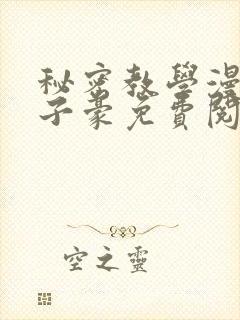 秘密教學漫
子豪免費閱
空之靈